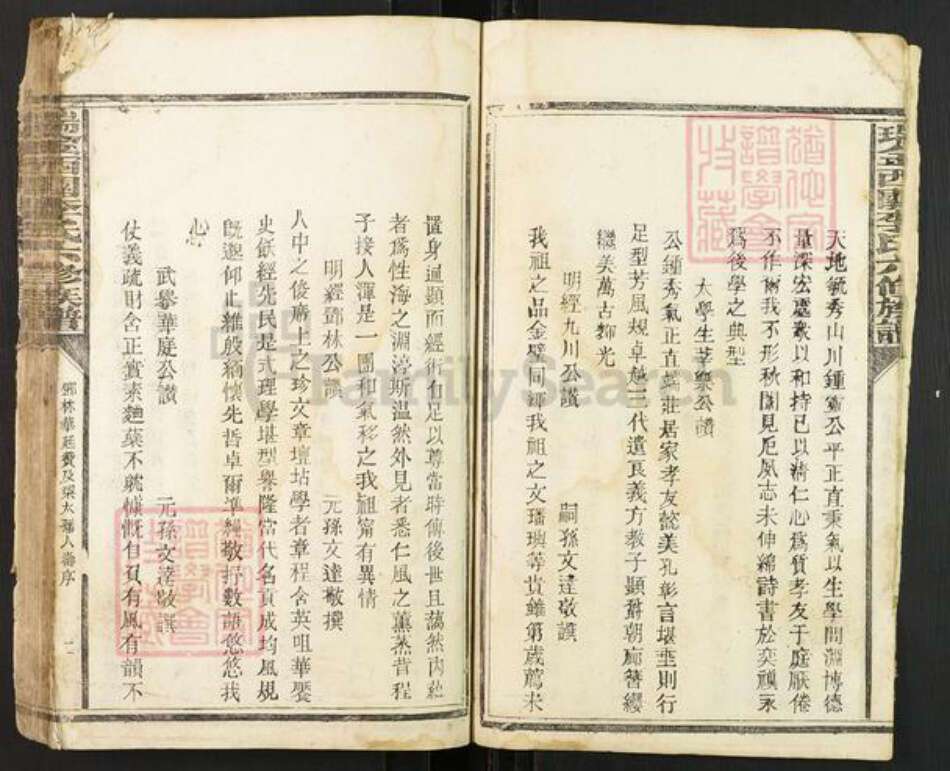 天地毓秀山川鍾靈公平正直秉氣以生學問淵博德
量深宏處衆以和持己以淸仁心爲質孝友于庭厭倦
不作爾我不形秋闈見戹夙志未伸綿詩書於奕禩永
爲後學之典型
大學生莘樂公讚
公鍾秀氣正直端莊居家孝友懿美孔彰言堪垂則行
足型芳風規卓越三代遺良義方敎子顯爵朝廊簪纓
繼美萬古彌光
明經九川公讚 嗣孫文達敬譔
我祖之品金璧同輝我祖之文璠璵等貴雖第歲薦未
置身通顯而經術自足以尊當時傳後世且藹然內蘊
者爲性海之淵渟斯溫然外見者悉仁風之薰烝昔程
子接人渾是一團和氣移之我祖甯有異情
明經鄧林公讚 元孫文達敬撰
人中之俊席上之珍文章壇坫學者章程含英咀華饜
史飫經先民是式理學堪型譽隆當代名貢成均風規
旣邈仰止維殷緬懷先哲卓爾準繩敬抒數語悠悠我
心
武擧華庭公讚 元孫文達敬譔
仗義疏財含正實素麯蘖不躭慷慨自負有風有韻不
鄧林華廷贊及梁太孺人壽序
瑞金西關李氏六修族譜
FamilySearch